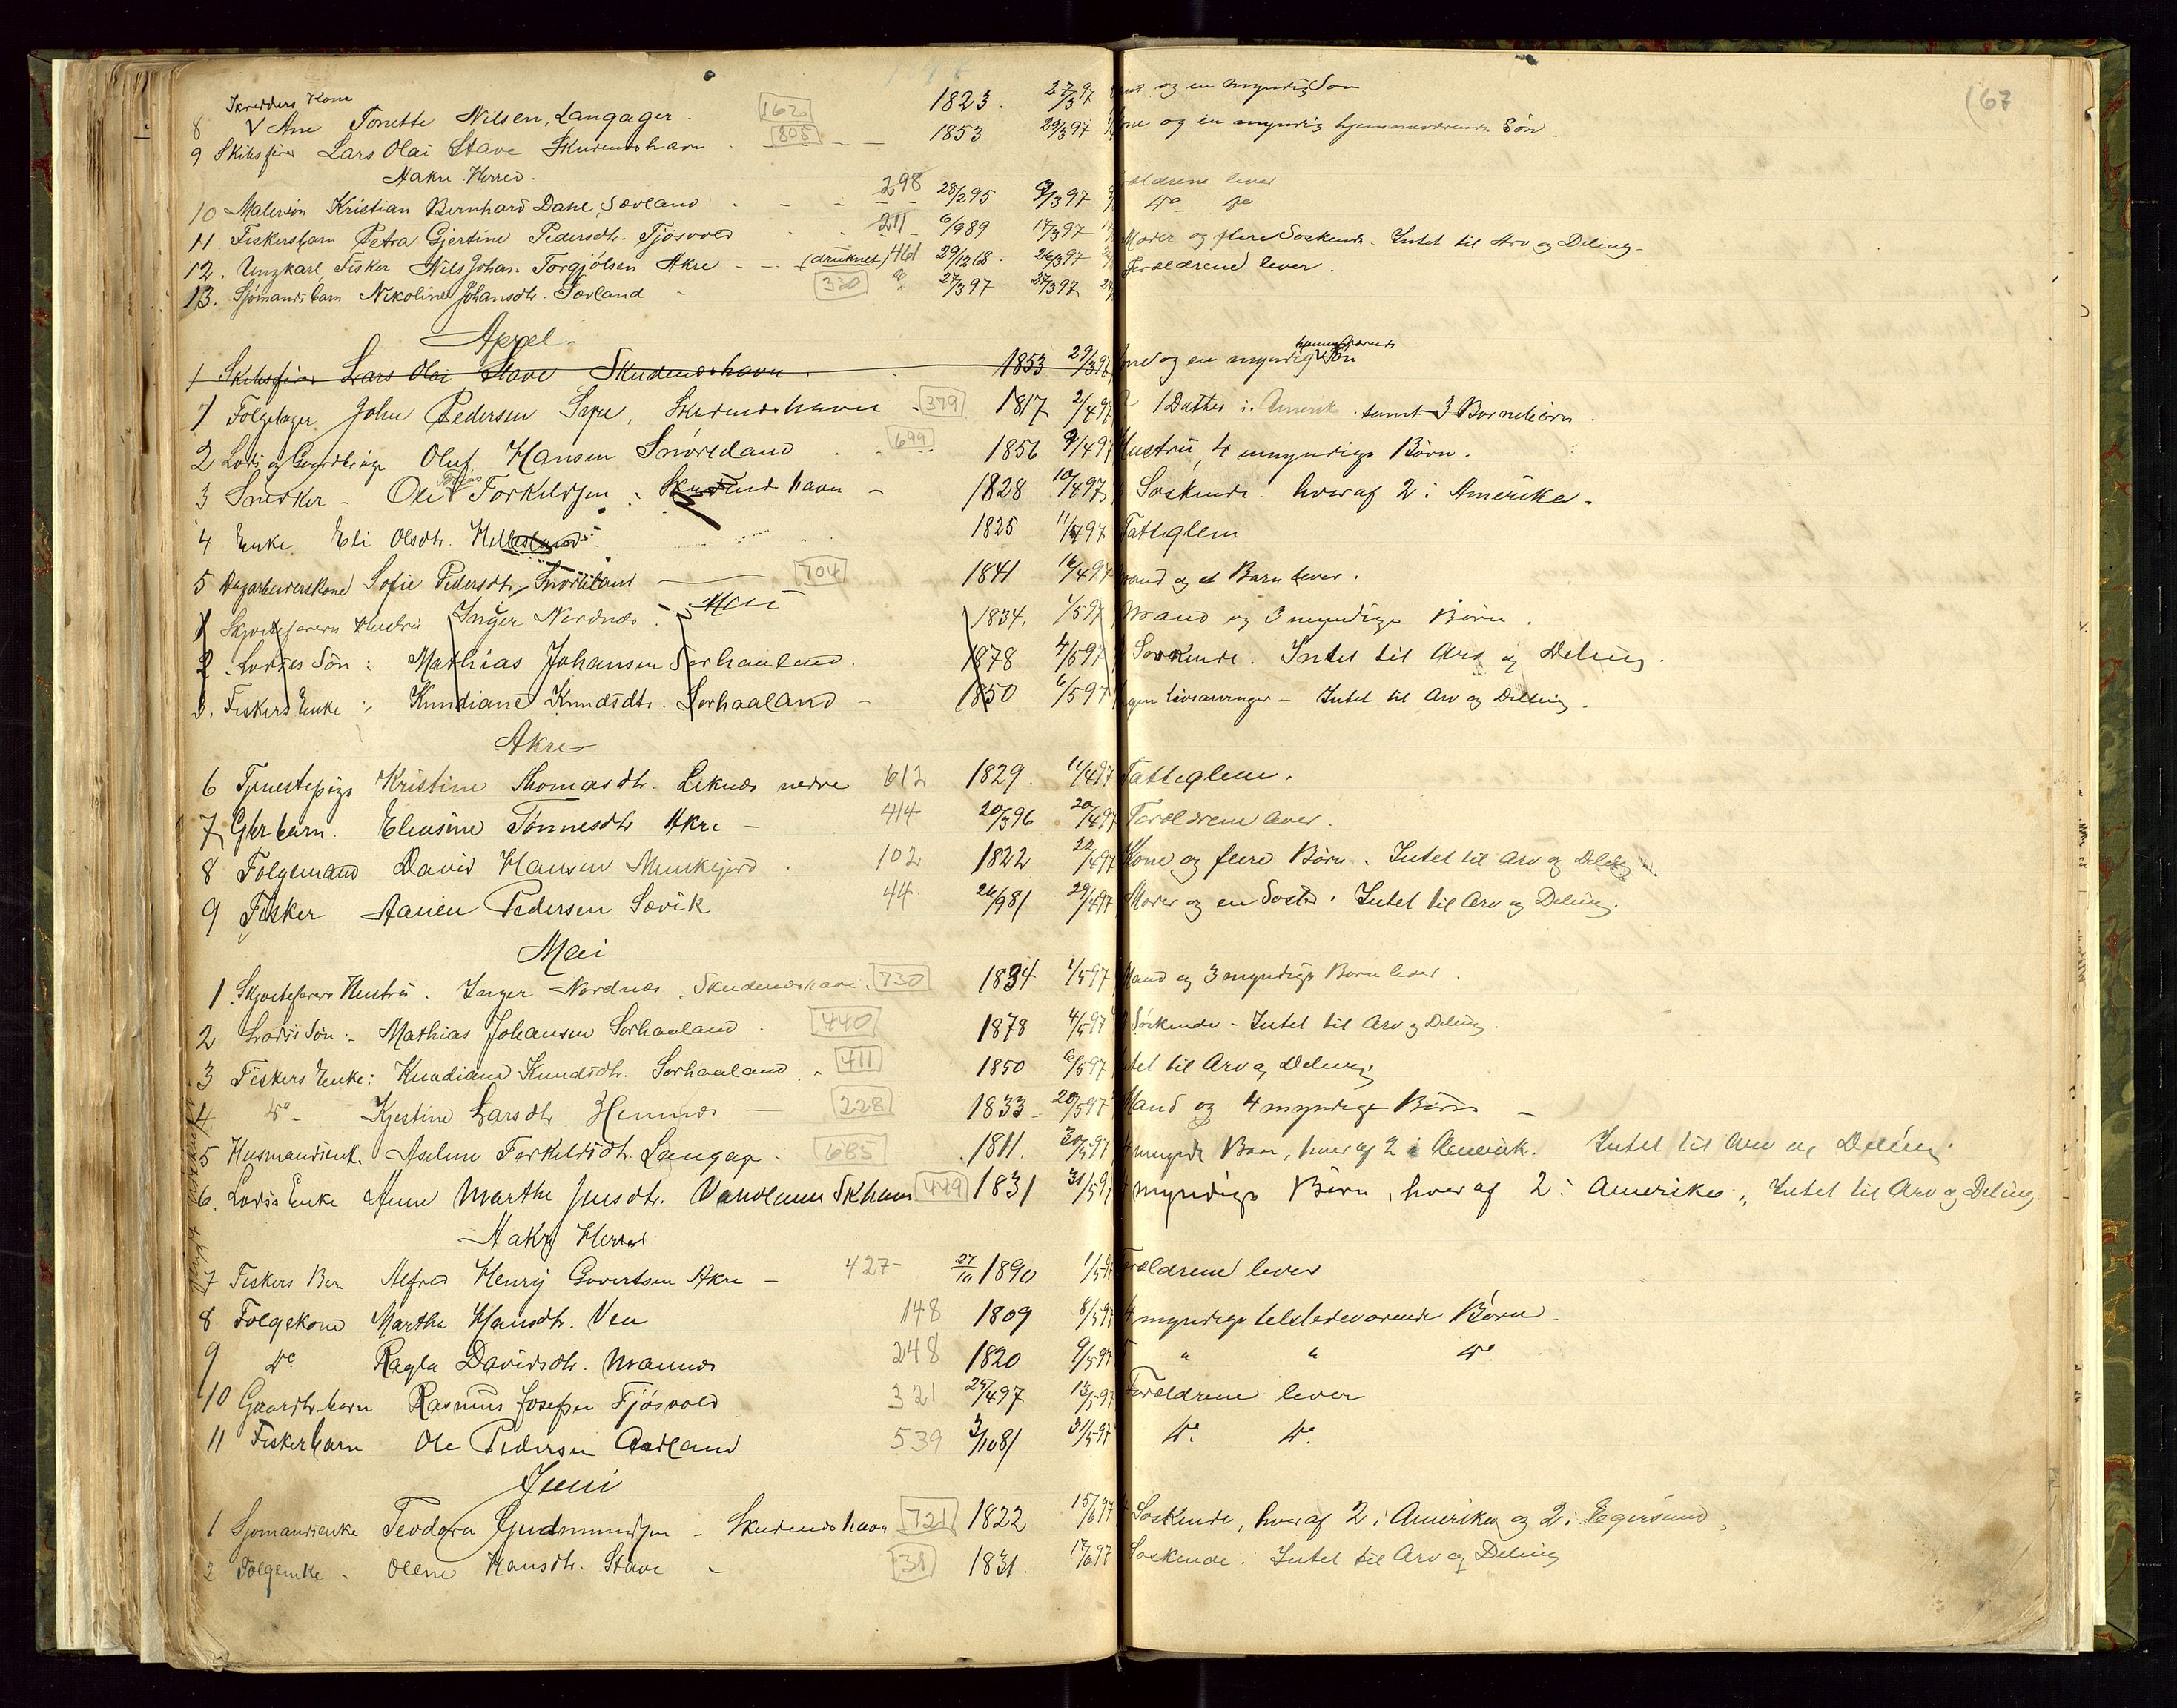 (67
Skredders Kone
8 Ane Tonette Nilsen, Langager. 162 1823. 27/3 97 og en myndig Søn
9 Skibsfører Lars Olai Stave Skudeneshavn 805 1853 29/3 97 og en myndig hjemmeværende Søn.
Aakre Herred.
10 Malersøn Kristian Bernhard Dahl, Sævland 298 28/2 95 9/3 97 ældrene lever
11 Fiskersbarn Petra Gjertine Pedersdtr. Tjøsvold 211 6/9 89 17/3 97 Do Do
12. Ungkarl Fisker Nils Johan Torgjølsen Akre (druknet) 461 29/12 68. 26/3 97 Moder og flere Søskende. Intet til Arv og Deling
13. Sjømandsbarn Nikoline Johansdtr. Sævland 330 27/3 97 27/3 97 Forældrene lever.
April
1 Skibsfører Lars Olai Stave Skudeneshavn. 1853 29/3 97 og en myndig hjemmeværende Søn
1 Følgetager John Pedersen Syre, Skudeneshavn 379 1817 2/4 97 1 Datter i Amerik. samt 3 Børnebørn.
2 Lods og Gaardbruger Oluf Hansen Snøreland 699 1856 9/4 97 Hustru, 4 umyndige Børn.
3 Snedker - Ole Torkildsen, Skudeneshavn - 1828 10/4 97 Søskende. hvoraf 2 i Amerika.
4 Enke Eli Olsdtr. Hillesland 1825 11/4 97 Fattiglem
5 Dagarbeiderskone Sofie Pedersdtr. Snøreland 704 1841 16/4 97 Mand og et Barn lever.
Mai
1 Skjorteførers Hustru Inger Nordnes. 1834. 1/5 97 Mand og 3 myndige Børn.
2. Lodses Søn: Mathias Johansen Sørhaaland. 1878 4/5 97 Søskende. Intet til Arv og Deling.
3. Fiskers Enke: Knudiane Knudsdtr. Sørhaaland - 1850 6/5 97 Ingen Livsarvinger - Intet til Arv og Deling.
Akre
6 Tjenestepige Kristine Thomasdtr. Liknes nedre 612 1829. 11/4 97 Fattiglem.
7 Gbr barn. Eleusine Tønnesdtr Akre - 414 20/3 96 20/4 97 Forældrene lever.
8 Følgemand David Hansen Munkejord. 102 1822 22/4 97 Kone og flere Børn. Intet til Arv og Deling
9 Fisker Aanen Pedersen Sævik 44 26/9 81 29/4 97 Moder og en Søster. Intet til Arv og Deling.
Mai
1. Skjorteførers Hustru. Inger Nordnes. Skudeneshavn. 730 1834 1/5 97 Mand og 3 myndige Børn lever.
2 Lodses Søn: Mathias Johansen Sørhaaland. 440 1878 4/5 97 Søskende - Intet til Arv og Deling.
3 Fiskers Enke: Knudiane Knudsdtr. Sørhaaland. 411 1850 6/5 97 Intet til Arv og Deling
4 Do - Kjestine Larsdtr Hemnes - 228 1833 20/5 97 Mand og 4 myndige Børn -
5 Husmandsenk. Aselene Torkildsdtr. Langag. 685 1811. 30/5 97 myndi Børn, hvoraf 2 i Amerik. Intet til Arv og Deling.
6. Lodses Enke Anne Marthe Jensdtr. Vandamm Skhavn 449 1831 31/5 97 myndige Børn, hvoraf 2 i Amerika, Intet til Arv og Deling
Aakre Herred
7 Fiskers Ba Alfred Henrij Govertsen Akre - 427 27/10 1890 1/5 97 Forældrene lever
8 Følgekone Marthe Hansdtr. Vea 148 1809 8/5 97 4 myndige tilstedeværende Børn.
9 Do. Ragla Davidsdtr. Mannes 248 1820 9/5 97 " " Do.
10 Gaardbr. barn Rasmus Josefsen Tjøsvold 321 25/4 97 13/5 97 Forældrene lever
11 Fiskerbarn Ole Pedersen Aadland 539 3/10 81 31/5 97 Do. Do.
Juni
1 Sjømandsenke Teodora Gudmundsen - Skudeneshavn 721 1822 15/6 97 Søskende, hvoraf 2 i Amerika og 2 i Egersund,
2 Følgeenke - Olene Hansdtr. Stave - 31 1831. 17/6 97 Søskende. Intet til Arv og Deling